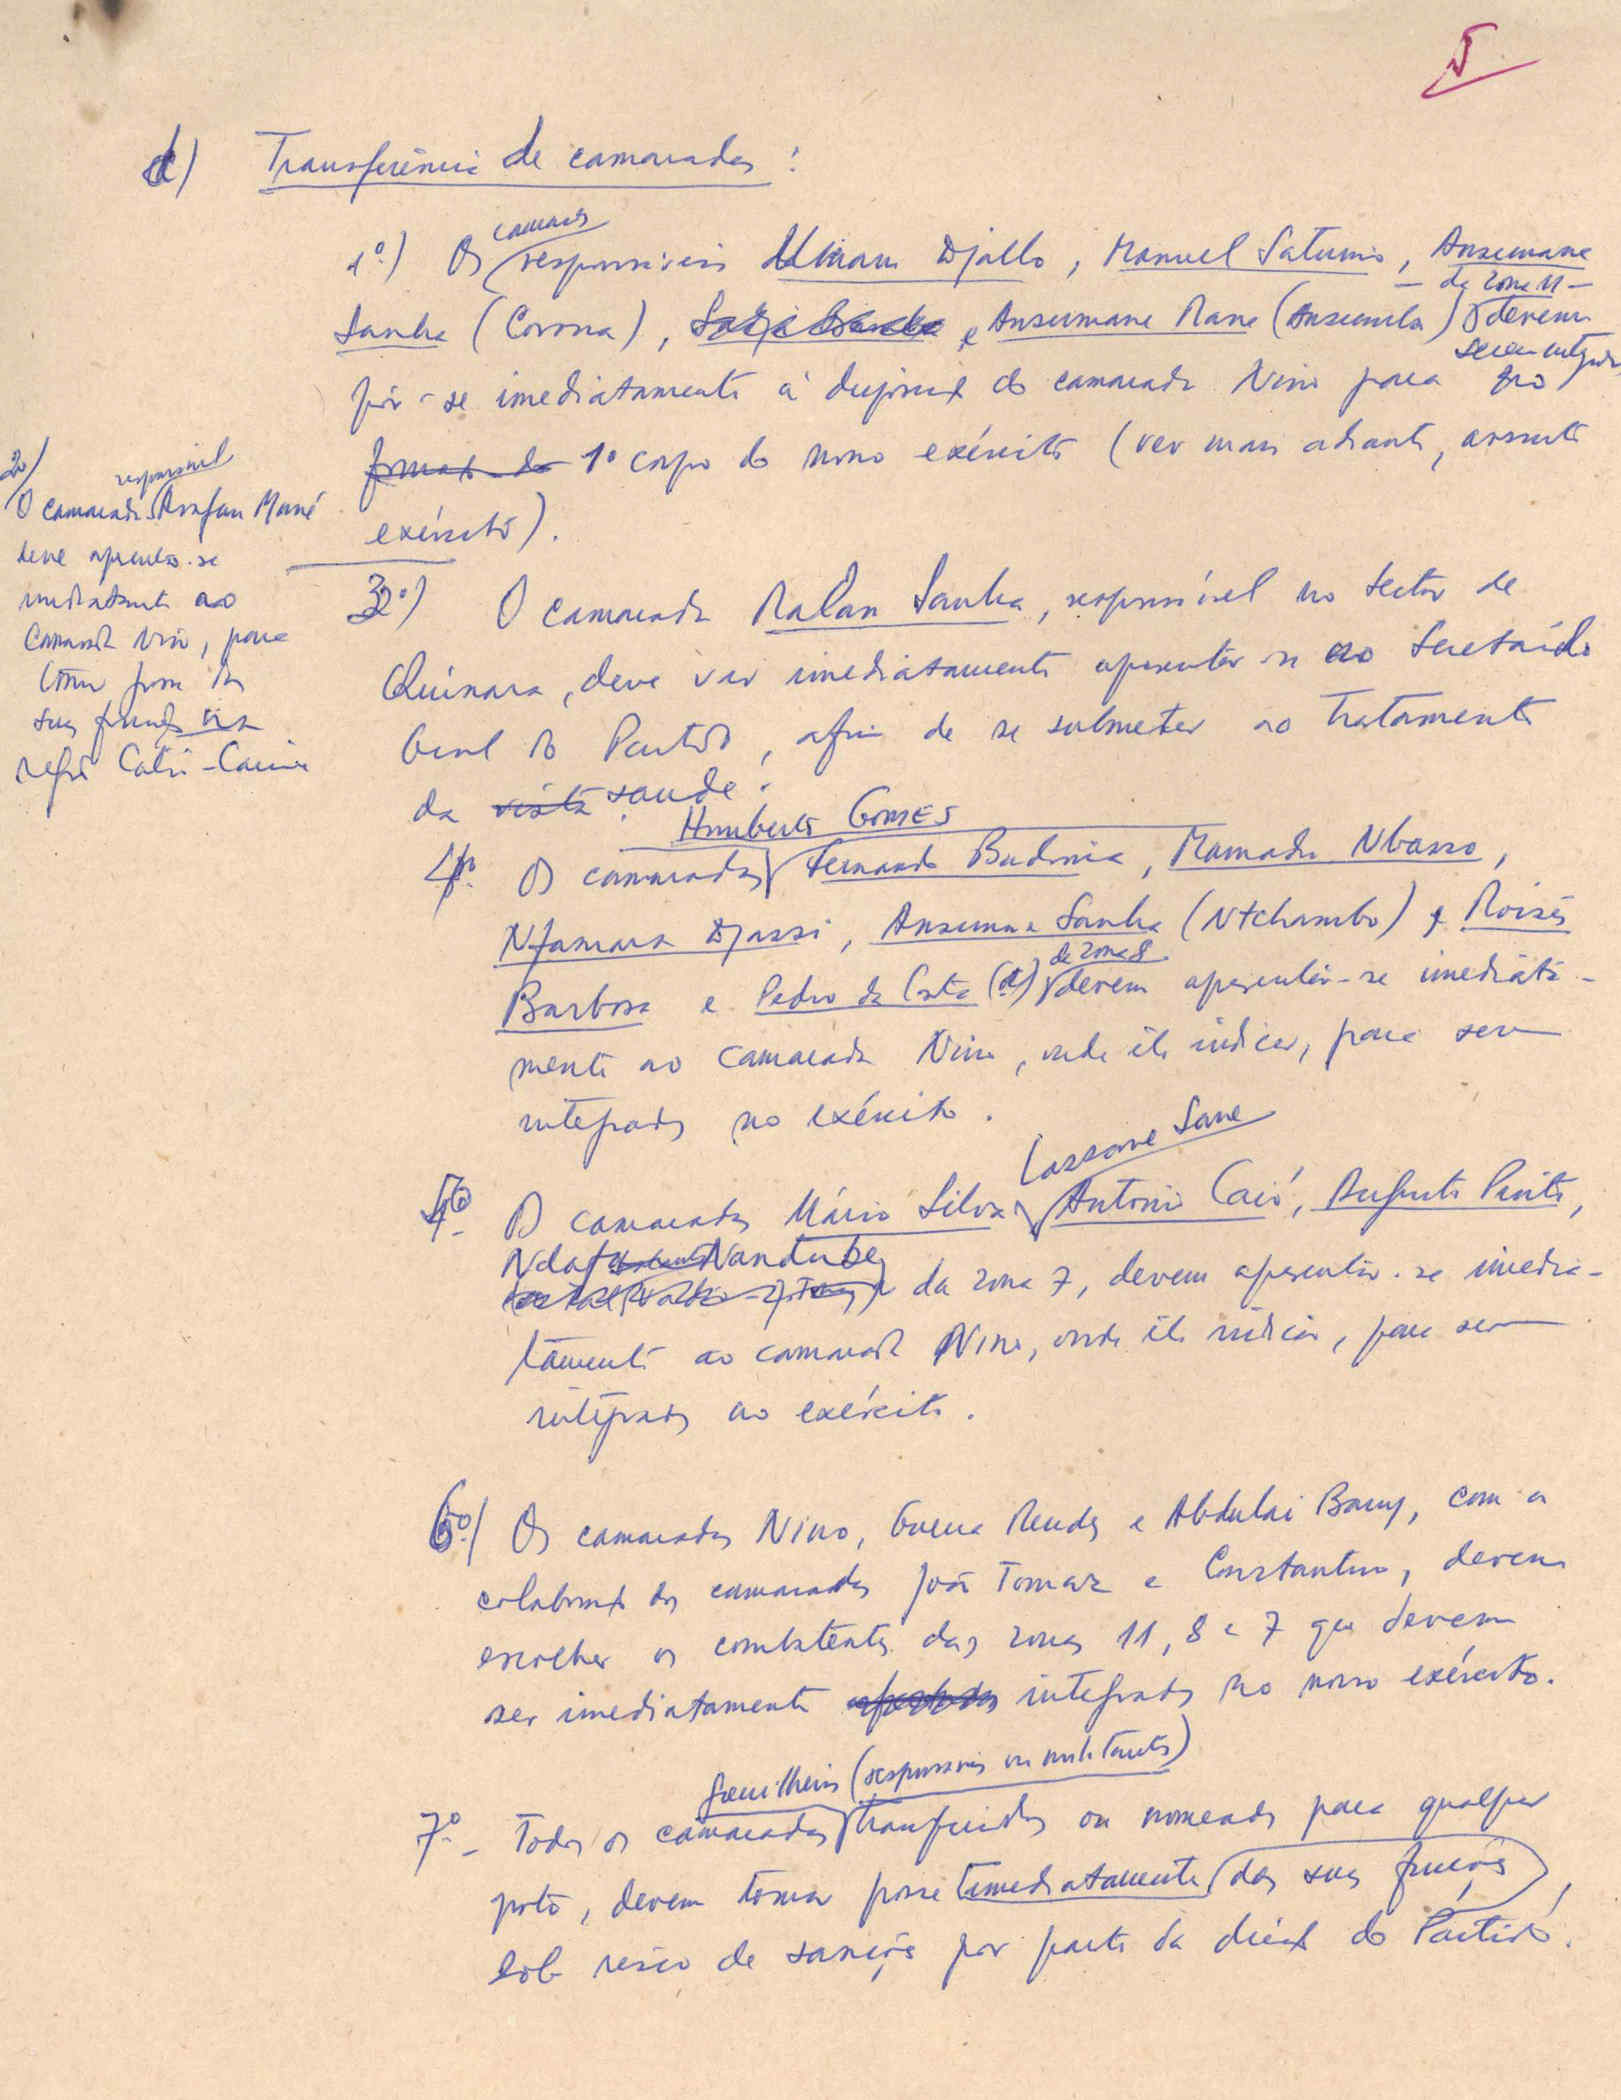 5
d) Transferência de camaradas :
camaradas
1º.) Os responsáveis Umaru Djallo, Manuel Saturnino, Ansumane
— da zona 11 —
Sanha (Corona), e Ansumane Mane (Ansumila) devem
serem integrados
pôr-se imediatamente à disposição do camarada Nino para no
formação do 1º corpo do nosso exército (ver mais adiante, assunto
exército).
2º)
responsável
O camarada Arafan Mané
deve apresentar-se
imediatamente ao
camarada Nino, para
tomar posse das
suas funções na
região Catió-Cacine
3º) O camarada Malan Sanha, responsável no sector de
Quinara, deve vir imediatamente apresentar-se ao Secretário
Geral do Partido, afim de se submeter ao tratamento
da vista saude.
Humberto GOMES
4º. Os camaradas Fernando Badinca, Mamadu Nbasso,
Nfamara Djassi, Ansumane Sanha (Ntchambo) e Moisés
de zona 8
Barbosa e Pedro da Costa devem apresentar-se imediata-
mente ao camarada Nino, onde ele indicar, para serem
integrados no exército.
Lassane Sane
5º- Os camaradas Mário Silva, Antonio Caió, Augusto Pinto,
Ndaf Nandube
da zona 7, devem apresentar-se imedia-
tamente ao camarada Nino, onde ele indicar, para serem
integrados ao exército.
6º.) Os camaradas Nino, Guerra Mendes e Abdulai Barry, com a
colaboração dos camaradas João Tomaz e Constantino, devem
escolher os combatentes das zonas 11, 8 e 7 que devem
ser imediatamente integrados no nosso exército.
guerrilheiros (responsáveis ou militantes)
7º- Todos os camaradas transferidos ou nomeados para qualquer
posto, devem tomar posse imediatamente das suas funções,
sob risco de sanções por parte da direcção do Partido.